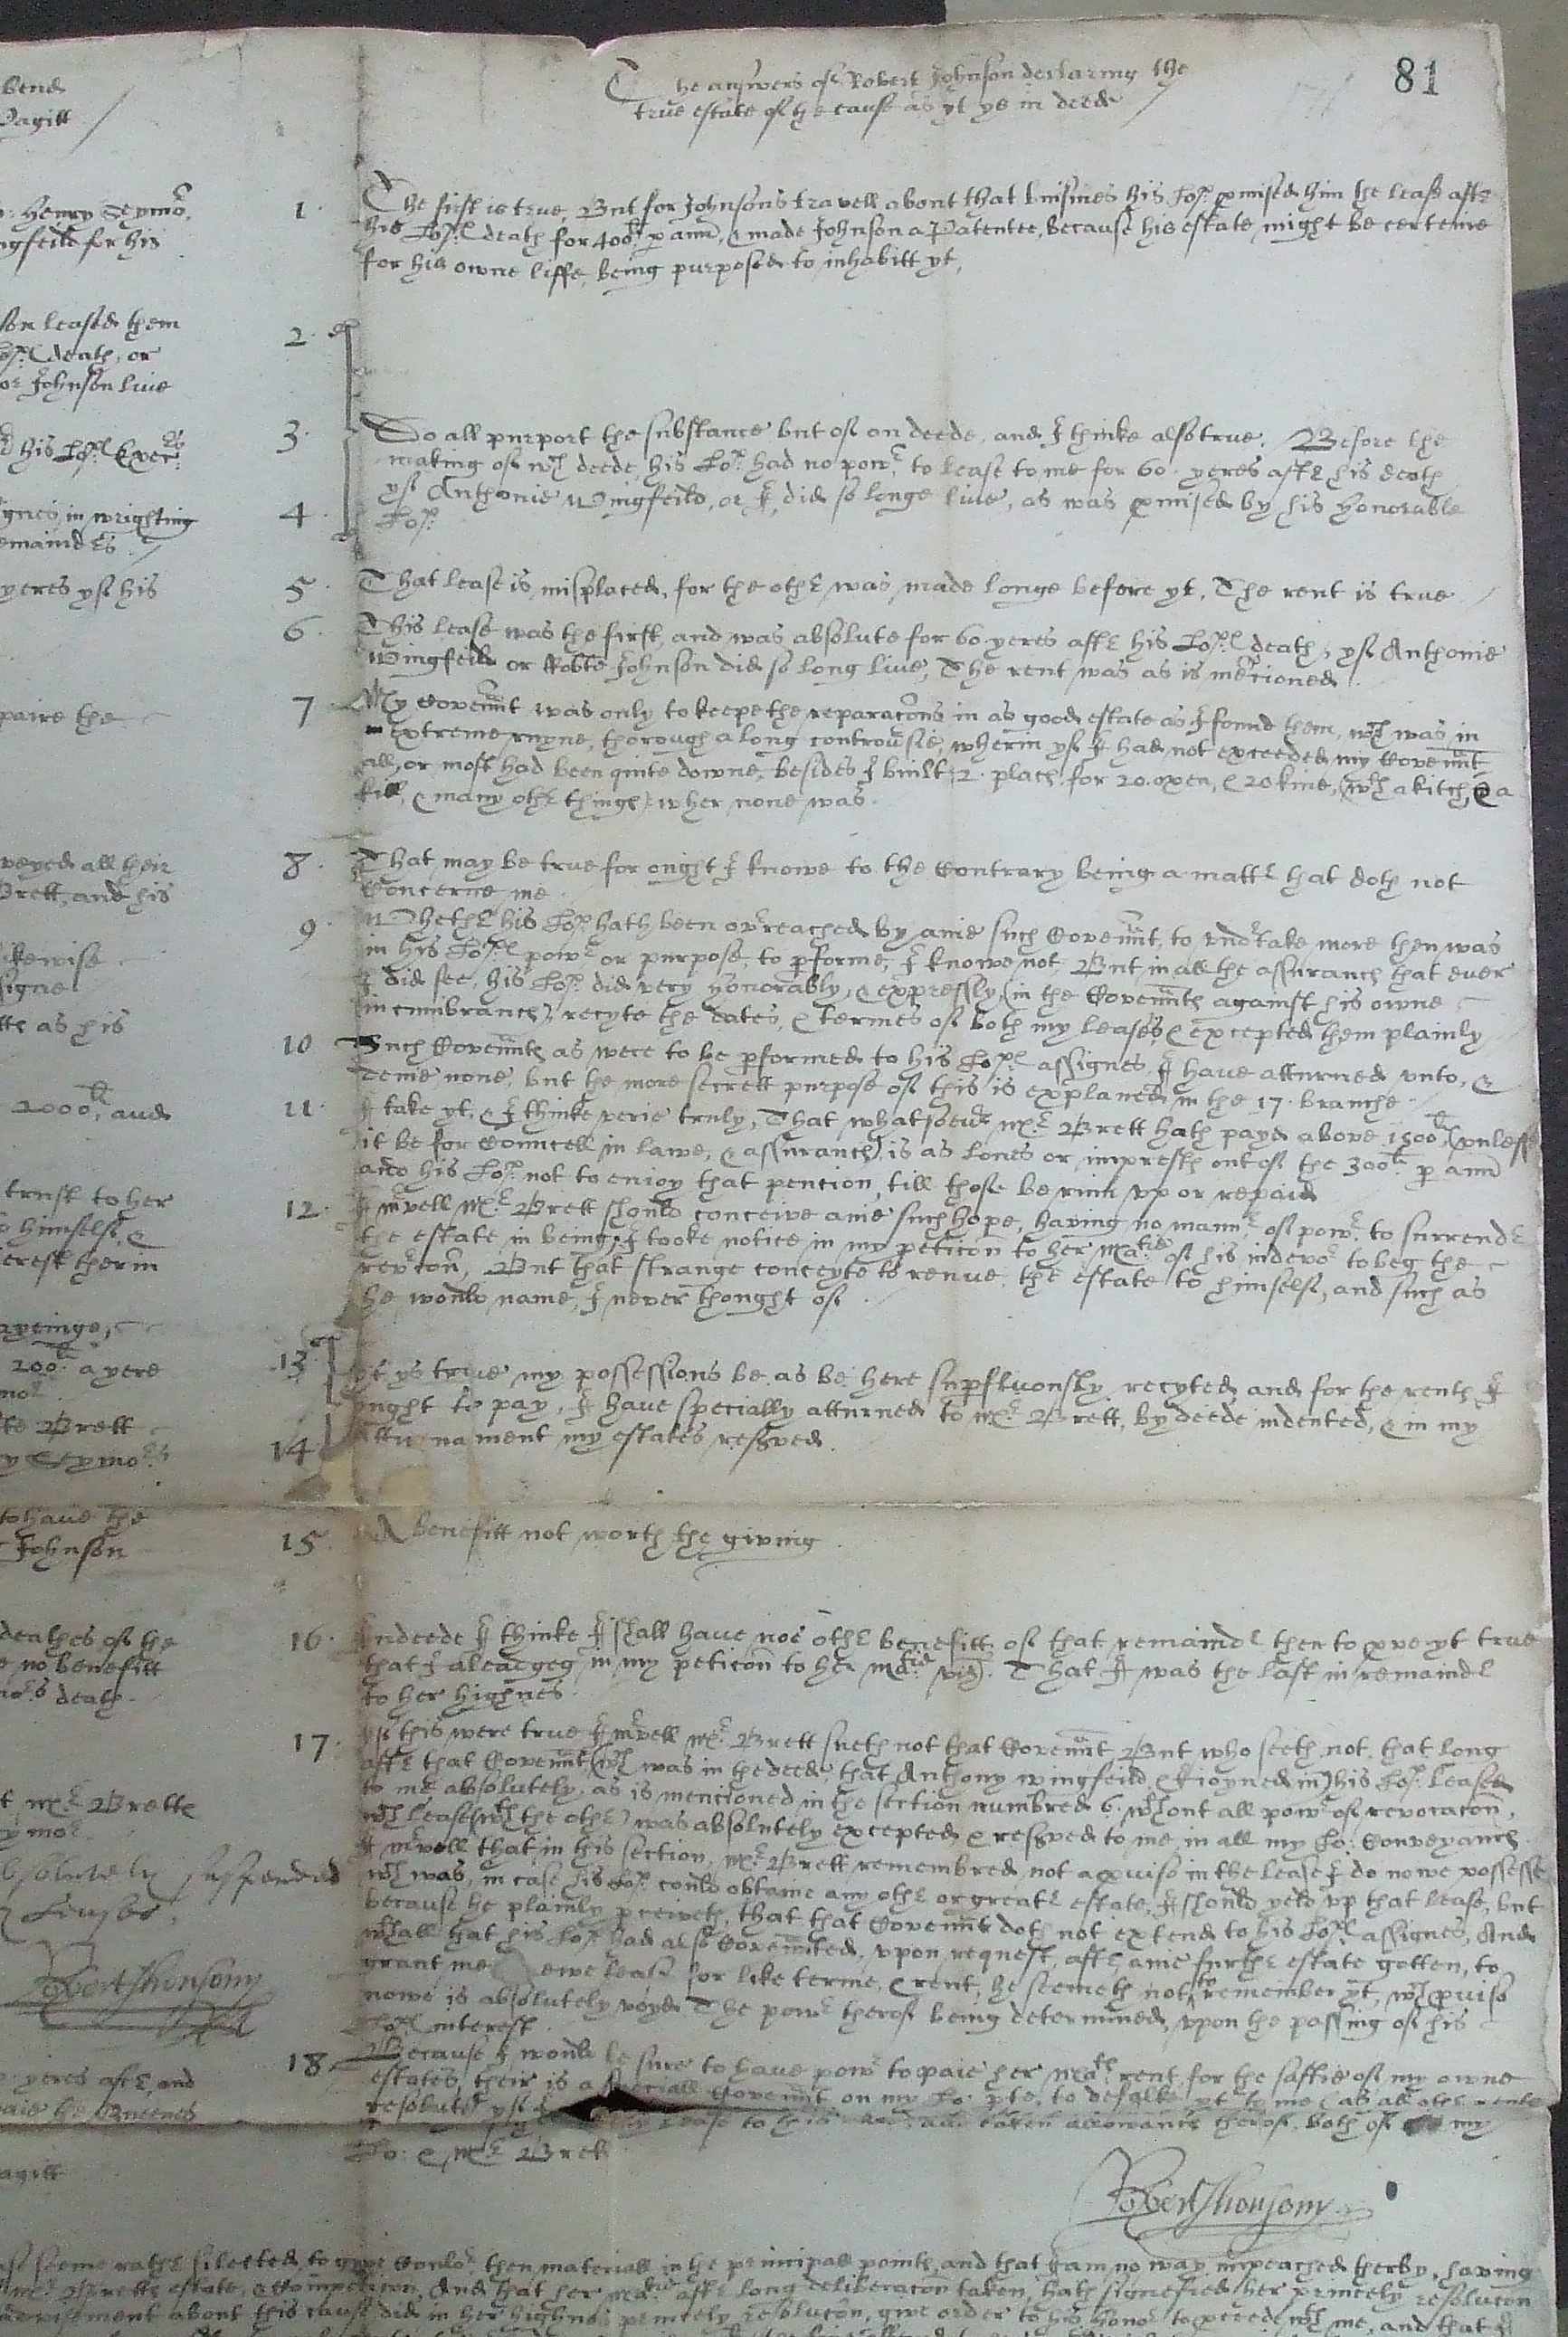 81
The answers of Robert Johnson declaring the
true estate of the cause as yt ys in deede
bend
Pagitt
Henry Seymor,
ngfeild for his
son leased them
Lo:ps death, or
or Johnson live
his Lo:ps Exec:
signes in wrighting
emainders
yeres yf his
paire the
veyed all their
Brett, and his
likewise
signe
as his
2000li, and
trust to her
himself, &
erest therin
200li a yere
mor
Brett
Seymors
to have the
Johnson
deathes of the
no benefitt
mors death
mr Bretts
ymor
absolutely suspended
Robert Jhonsonn
yeres after, and
paie the Queenes
agitt
1. The first is true, But for Johnsons travell about that busines his Lo:p promised him the lease after
his Lo:ps death for 400li p ann, & made Johnson a Patentee, because his estate might be certeine
for his owne liffe, being purposed to inhabitt yt,
2.
3. Do all purport the substance but of on deede, and I thinke also true, Before the
making of wch deede, his Lo:p had no power to lease to me for 60 yeres after his death
yf Anthonie Wingfeild, or I, did so longe live, as was promised by his honorable
4. Lo:p.
5. That lease is misplaced, for the other was made longe before yt, The rent is true
6. This lease was the first, and was absolute for 60 yeres after his Lo:ps death, yf Anthonie
Wingfeild or Robte Johnson did so long live, The rent was as is mencioned
7 My Covennt was only to keepe the reparacons in as good estate as I found them, wch was in
extreme ruyne, thorough a long controversie, wherin yf I had not exceeded my Covennt
all, or most had been quite downe, besides I built 2. places for 20. oxen, & 20 kine, (wth a kitch, & a
kill, & many other things) wher none was.
8. That may be true for ought I knowe to the Contrary being a matter that doth not
Concerne me.
9. Whether his Lo:p hath been overreached by anie such Covennt, to undertake more then was
in his Lo:ps power or purpose, to performe, I knowe not, But in all the assurances that ever
I did see, his Lo:p did very honorably, & expressly, (in the Covennts against his owne
incumbrances) recyte the dates, & termes of both my leases, & excepted them plainly
10 Such Covennts as were to be performed to his Lo:ps assignes, I have atturned unto, &
denie none, but the more secrett purpose of this is explaned in the 17. branche
11. I take yt, & I thinke verie truly, That whatsoever mr Brett hath payd above 1500li (unlesse
it be for Councell in lawe, & assurances) is as lones or imprests out of the 300li p ann
and his Lo:p not to enioy that pention, till those be runn up or repaid
12. I mrvell mr Brett should conceive anie such hope, having no manner of power to surrender
the estate in being, I tooke notice in my peticon to her Matie of his indevor to beg the
revercon, But that strange conceyte to renue the estate to himself, and such as
he would name, I never thought of.
13. yt ys true my possessions be as be here superfluously recyted, and for the rents I
ought to pay, I have specially atturned to mr Brett, by deede indented, & in my
14 atturnament my estates reserved.
15. A benefitt not worth the giving
16. Indeede I thinke I shall have noe other benefitt of that remainder then to prove yt true
that I aleadgeg in my peticon to her Matie viz. That I was the last in remainder
to her highnes.
17. If this were true I mrvell mr Brett sueth not that Covennt, But who seeth not, that long
after that Covennt (wch was in the deede, that Anthony wingfeild & I ioyned in) his Lo:p leased
to me absolutely, as is mentioned in the section numbred 6. wthout all power of revocacon,
wch lease (wth the other) was absolutely excepted & reserved to me, in all my Lo: Conveyances
I mrvell that in this section, mr Brett remembred not a proviso in the lease I do nowe possesse
wch was, in case his Lo:p could obtaine any other or greater estate, I should yeld up that lease, but
because he plainly perceiveth, that that Covennt doth not extend to his Lo:ps assignes, And
wthall that his Lo:p had also Covennted, upon request, after anie further estate gotten, to
grant me ewe lease for like terme, & rent, he seemeth not to remember yt, wch proviso
nowe is absolutely voyd The power therof being determined, upon the passing of his
Lo:ps interest.
18. Because I would be sure to have power to paie her Maties rent for the saftie of my owne
estates, their is a speciall Covennt on my Lo: pte, to defalke yt to me (as all other rents
resolute yf I lease to have taken allowance therof, both of my
Lo: & mr Brett.
Robert Jhonsonn
seeme rather filected to give Coulor, then materiall in the principall points, and that I am no way impeached therby, having
mr Bretts estate, & Competicion, And that her Matie after long deliberacon taken, hath signefied her princely resolucon
advisement about this cause did in her highnes princely resolucon, give order to his honor to procede wth me, and that I